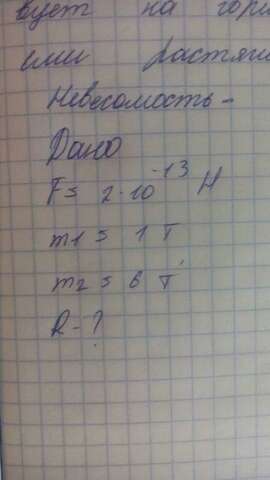 вует на гори
или растяги
Невесомость -
Дано
F = 2·10⁻¹³ Н
m1 = 1 т
m2 = 6 т
R - ?